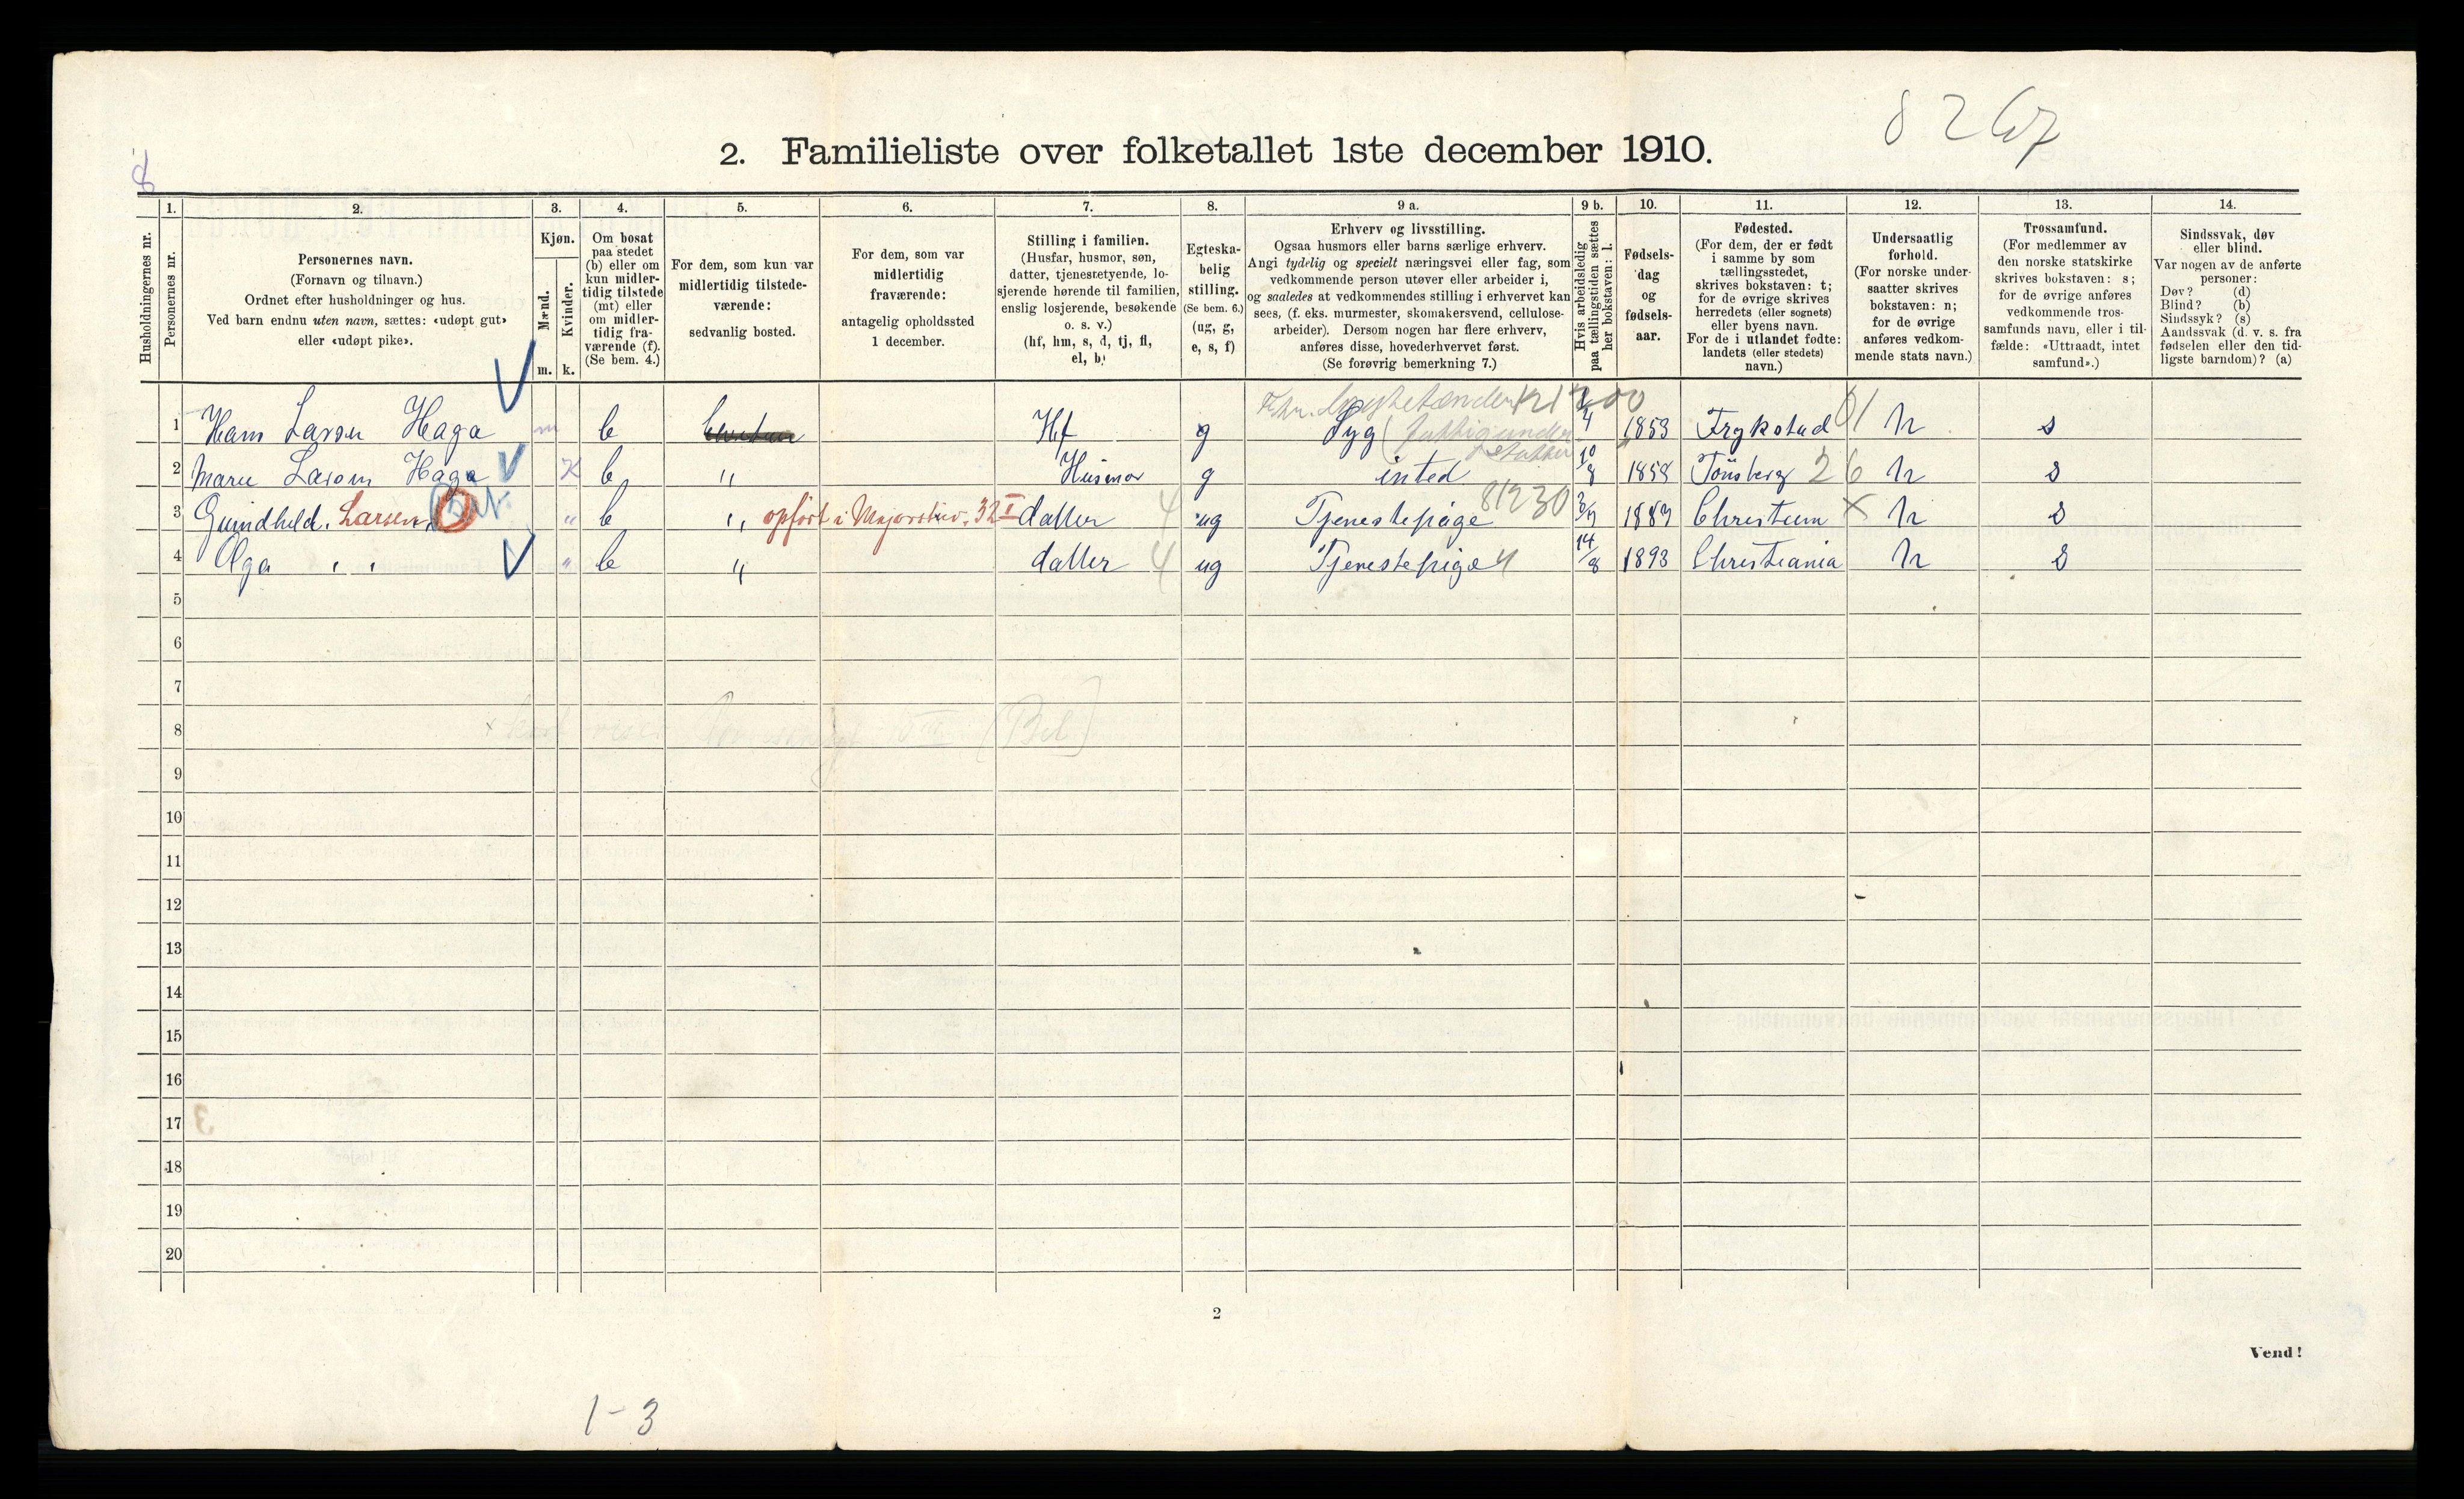 8267
8
2. Familieliste over folketallet 1ste december 1910.
Husholdningernes nr.
1. Personernes nr.
2.
Personernes navn.
(Fornavn og tilnavn.)
Ordnet efter husholdninger og hus.
Ved barn endnu uten navn, sættes: «udøpt gut»
eller «udøpt pike».
3.
Kjøn.
Mænd. m.
Kvinder. k.
4.
Om bosat
paa stedet
(b) eller om
kun midler-
tidig tilstede
(mt) eller
om midler-
tidig fra-
værende (f).
(Se bem. 4.)
5.
For dem, som kun var
midlertidig tilstede-
værende:
sedvanlig bosted.
6.
For dem, som var
midlertidig
fraværende:
antagelig opholdssted
1 december.
7.
Stilling i familien.
(Husfar, husmor, søn,
datter, tjenestetyende, lo-
sjerende hørende til familien,
enslig losjerende, besøkende
o. s. v.)
(hf, hm, s, d, tj, fl,
el, b)
8.
Egteska-
belig
stilling.
(Se bem. 6.)
(ug, g,
e, s, f)
9 a.
Erhverv og livsstilling.
Ogsaa husmors eller barns særlige erhverv.
Angi tydelig og specielt næringsvei eller fag, som
vedkommende person utøver eller arbeider i,
og saaledes at vedkommendes stilling i erhvervet kan
sees, (f. eks. murmester, skomakersvend, cellulose-
arbeider). Dersom nogen har flere erhverv,
anføres disse, hovederhvervet først.
(Se forøvrig bemerkning 7.)
9 b.
Hvis arbeidsledig
paa tællingstiden sættes
her bokstaven: l.
10.
Fødsels-
dag
og
fødsels-
aar.
11.
Fødested.
(For dem, der er født
i samme by som
tællingsstedet,
skrives bokstaven: t;
for de øvrige skrives
herredets (eller sognets)
eller byens navn.
For de i utlandet fødte:
landets (eller stedets)
navn.)
12.
Undersaatlig
forhold.
(For norske under-
saatter skrives
bokstaven: n;
for de øvrige
anføres vedkom-
mende stats navn.)
13.
Trossamfund.
(For medlemmer av
den norske statskirke
skrives bokstaven: s;
for de øvrige anføres
vedkommende tros-
samfunds navn, eller i til-
fælde: «Uttraadt, intet
samfund».)
14.
Sindssvak, døv
eller blind.
Var nogen av de anførte
personer:
Døv? (d)
Blind? (b)
Sindssyk? (s)
Aandssvak (d. v. s. fra
fødselen eller den tid-
ligste barndom)? (a)
1 Hans Larsen Haga m b Hf g Syg 4 1853 Frykstad 01 n s
2 Marie Larsen Haga K b " Husmor g inted 10/8 1858 Tönsberg 26 n s
3 Gundhild. Larsen " b " opført i Majorstuv. 32 I datter 4 ug Tjenestepige 81230 1887 Christian x n s
4 Olga " " " b " datter 4 ug Tjenestepige 14/8 1893 Christiania n s
5
6
7
8
9
10
11
12
13
14
15
16
17
18
19
20
2
Vend!
1-3